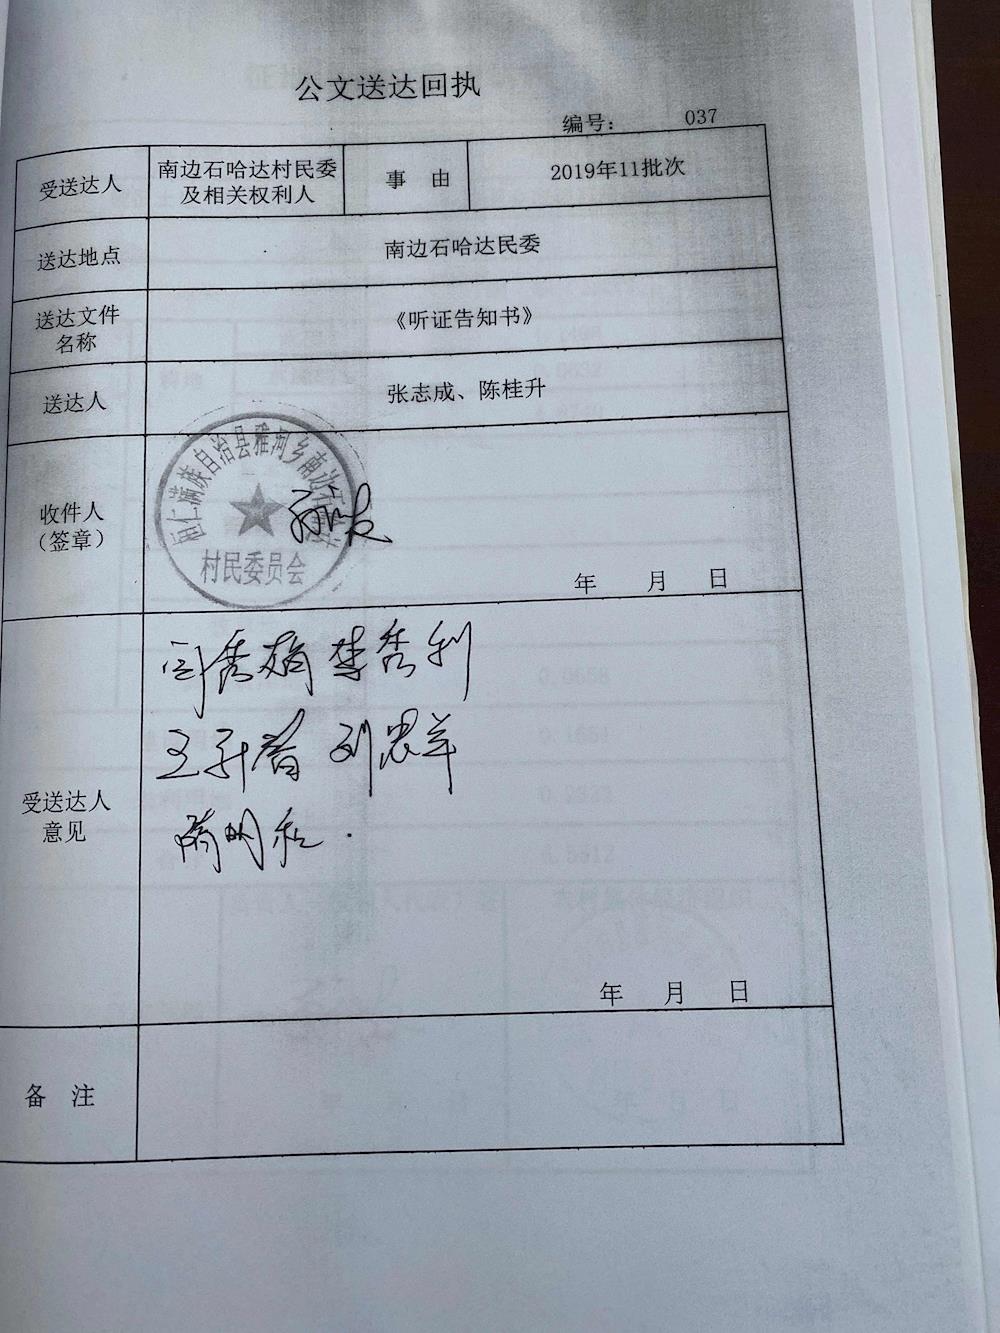 公文送达回执
编号： 037
受送达人
南边石哈达村民委
及相关权利人
事 由
2019年11批次
送达地点
南边石哈达民委
送达文件
名称
《听证告知书》
送达人
张志成、陈桂升
收件人
（签章）
桓仁满族自治县雅河乡南边石
村民委员会
年 月 日
受送达人
意见
闫秀梅 李秀利
王 刘忠羊
明和
年 月 日
备 注